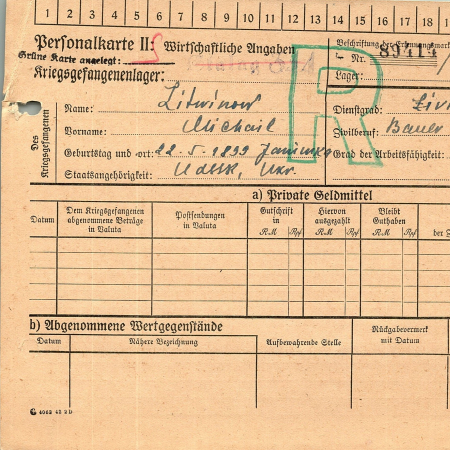 1 2 3 4 5 6 7 8 9 10 11 12 13 14 15 16 17 18
Personalkarte II: Wirtschaftliche Angaben
Beschriftung der Erkennungsmark
Grüne Karte angelegt:
Nr. 89414
Kriegsgefangenenlager:
Lager:
R
Des Kriegsgefangenen
Name: Litwinow
Dienstgrad: Zivi
Vorname: Michail
Zivilberuf: Bauer
Geburtstag und -ort: 22. 5. 1899
Grad der Arbeitsfähigkeit:
Staatsangehörigkeit: UdSSR, Ukr.
a) Private Geldmittel
Datum
Dem Kriegsgefangenen abgenommene Beträge in Valuta
Postsendungen in Valuta
Gutschrift in
RM Rpf
Hiervon ausgezahlt
RM Rpf
Bleibt Guthaben
RM Rpf
der
b) Abgenommene Wertgegenstände
Datum
Nähere Bezeichnung
Aufbewahrende Stelle
Rückgabevermerk mit Datum
4062 42 2 D